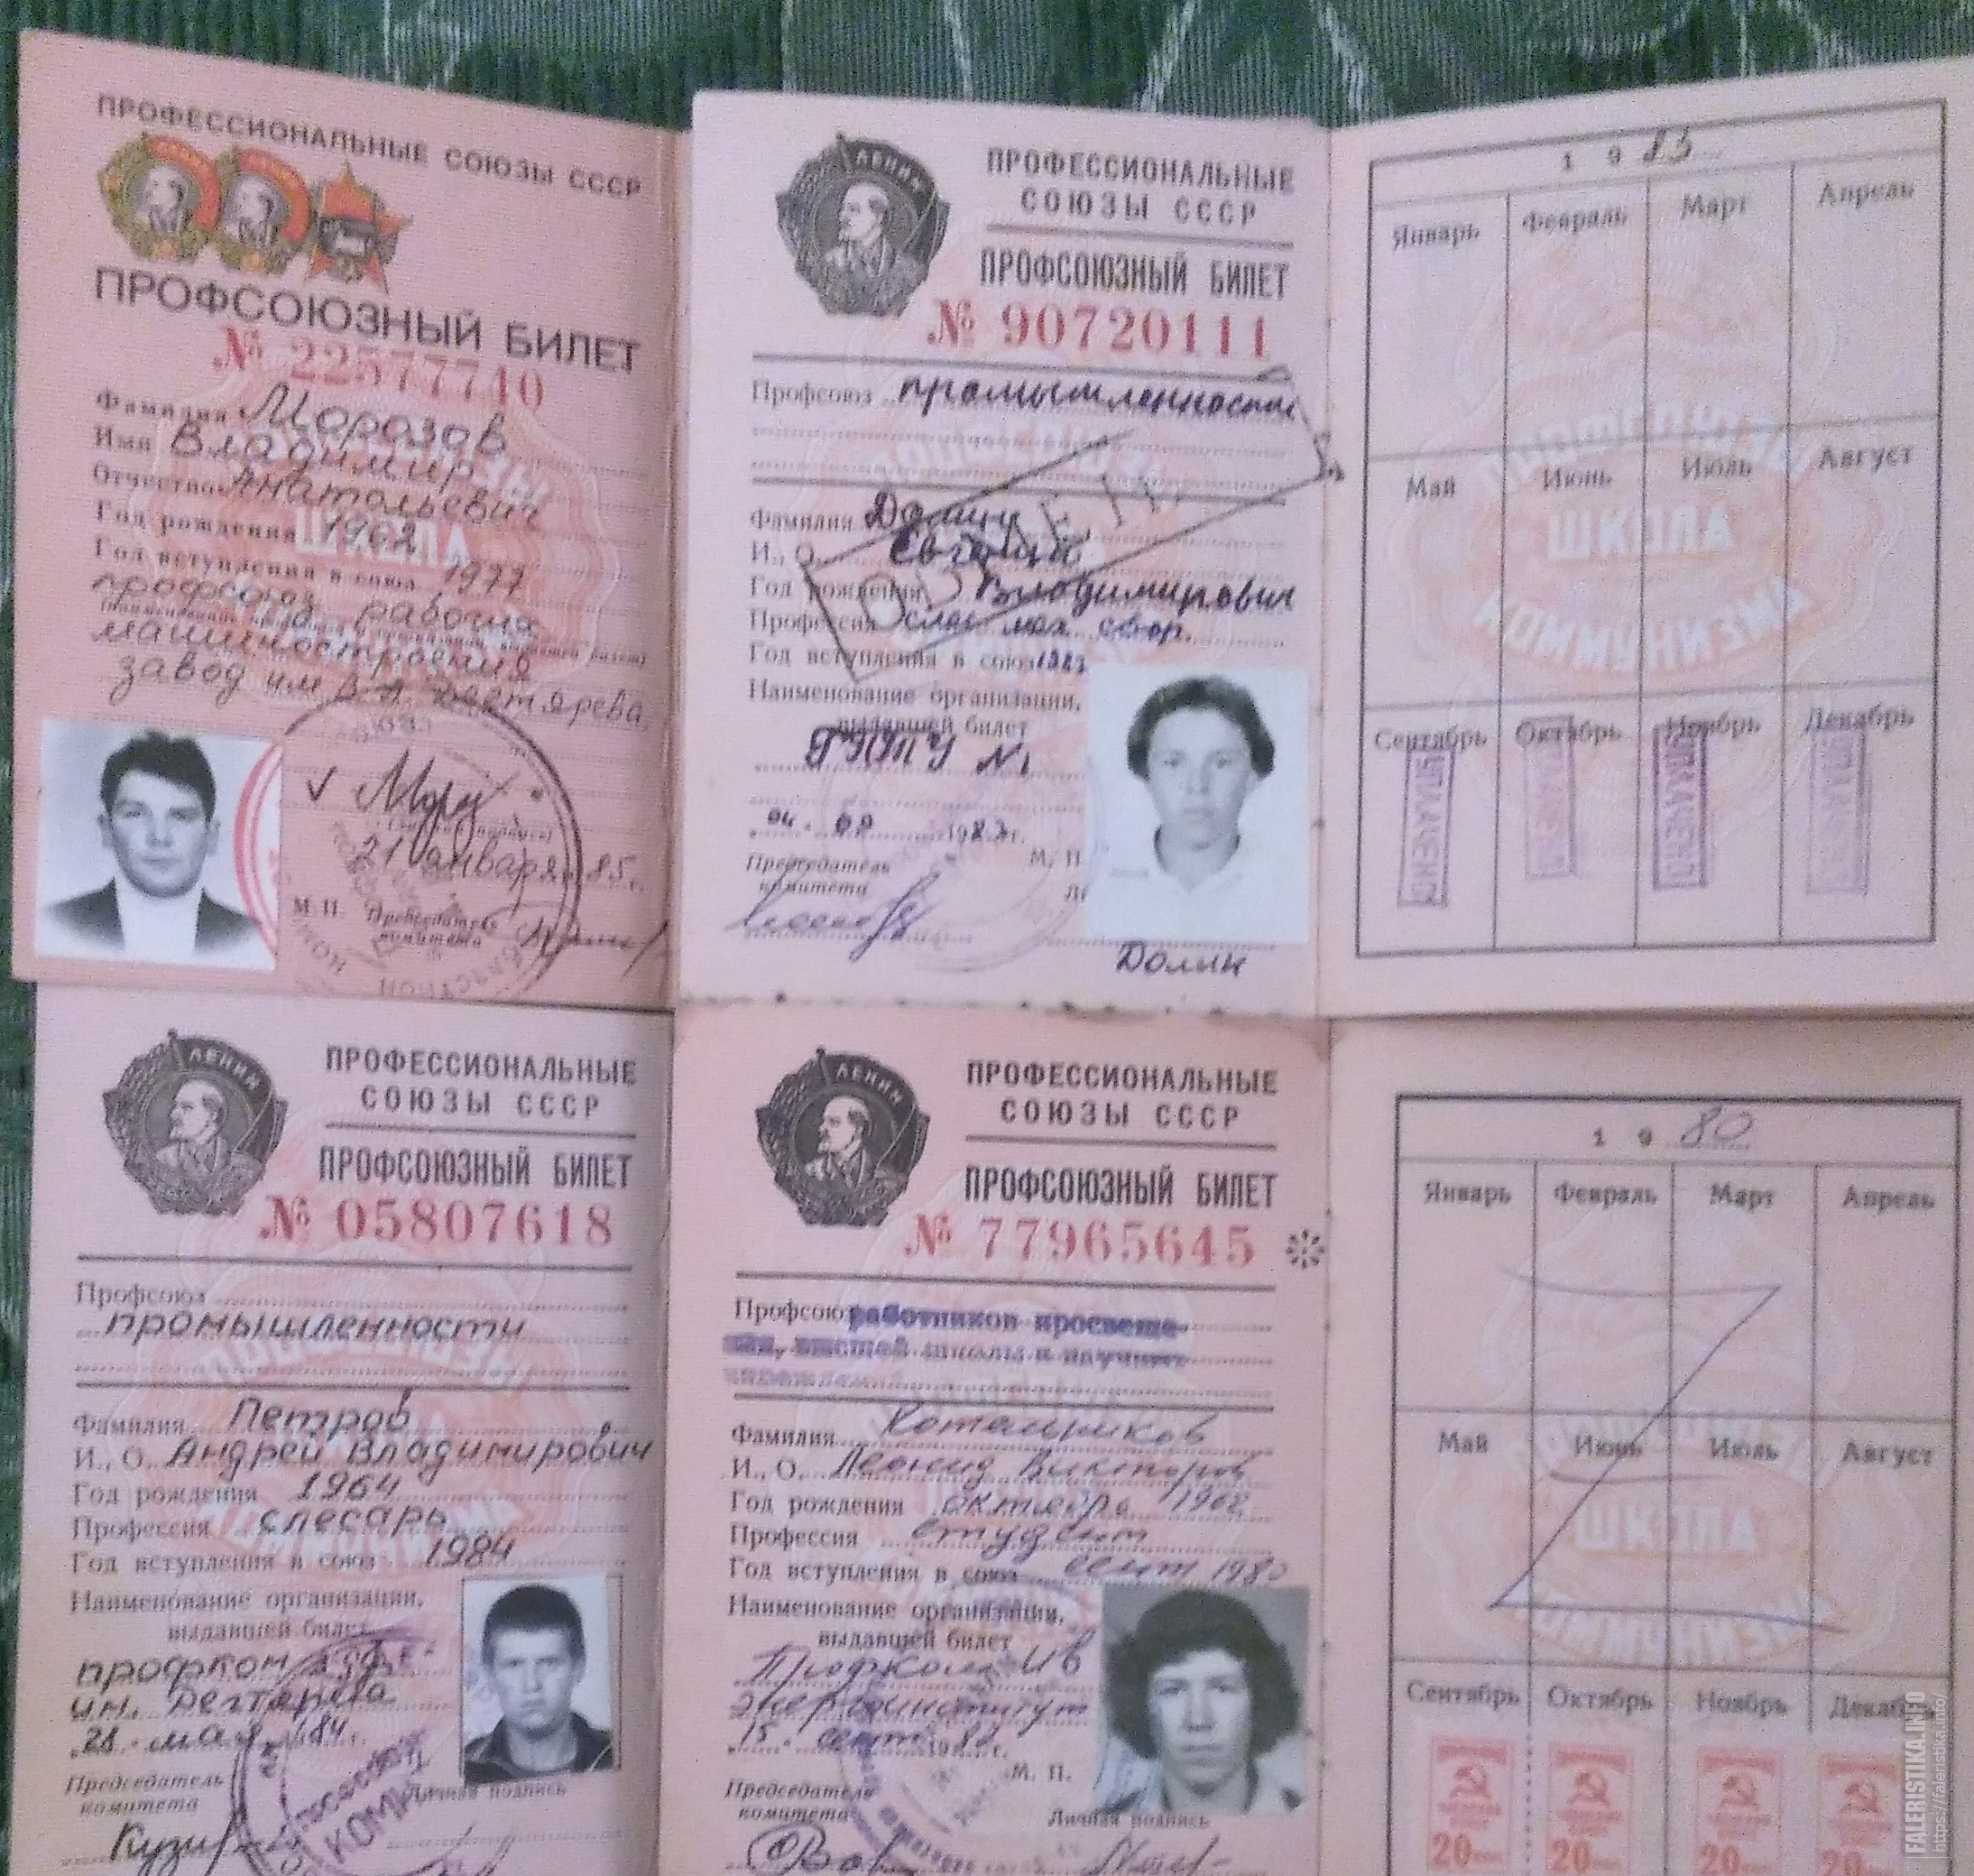 ПРОФЕССИОНАЛЬНЫЕ СОЮЗЫ СССР
ПРОФСОЮЗНЫЙ БИЛЕТ
№ 22577710
Фамилия Морозов
Имя Владимир
Отчество Анатольевич
Год рождения 1962
Год вступления в союз 1977
профсоюз рабочих
машиностроения
завод им В А Дегтярева
21 января 85 г.
М. П. Председатель
комитета
ЛЕНИН
ПРОФЕССИОНАЛЬНЫЕ
СОЮЗЫ СССР
ПРОФСОЮЗНЫЙ БИЛЕТ
№ 90720111
Профсоюз промышленности
Фамилия Долин
И., О. Евгений
Год рождения Владимирович
Профессия слес мех сбор.
Год вступления в союз 1983
Наименование организации,
выдавшей билет
ГПТУ №1
04. 09 1983 г.
Председатель
комитета
М. П
Долин
1983
Январь Февраль Март Апрель
Май Июнь Июль Август
Сентябрь Октябрь Ноябрь Декабрь
УПЛАЧЕНО УПЛАЧЕНО УПЛАЧЕНО УПЛАЧЕНО
ПРОФСОЮЗЫ
ШКОЛА
КОММУНИЗМА
ЛЕНИН
ПРОФЕССИОНАЛЬНЫЕ
СОЮЗЫ СССР
ПРОФСОЮЗНЫЙ БИЛЕТ
№ 05807618
Профсоюз
промышленности
Фамилия Петров
И., О. Андрей Владимирович
Год рождения 1964
Профессия слесарь
Год вступления в союз 1984
Наименование организации,
выдавшей билет
профком
им. Дегтярева
28 мая 1984 г.
Председатель
комитета
Личная подпись
ЛЕНИН
ПРОФЕССИОНАЛЬНЫЕ
СОЮЗЫ СССР
ПРОФСОЮЗНЫЙ БИЛЕТ
№ 77965645
Профсоюз работников просвеще-
ния, высшей школы и научных
Фамилия
И., О. Леонид Викторов
Год рождения октябрь 1962
Профессия студент
Год вступления в союз сент 1980
Наименование организации,
выдавшей билет
Профком Ив
Энергоинститут
15. сент 1980 г.
М. П.
Председатель
комитета
Личная подпись
1980
Январь Февраль Март Апрель
Май Июнь Июль Август
Сентябрь Октябрь Ноябрь Декабрь
ШКОЛА
КОММУНИЗМА
20 20 20 20
FALERISTIKA.INFO
https://faleristika.info